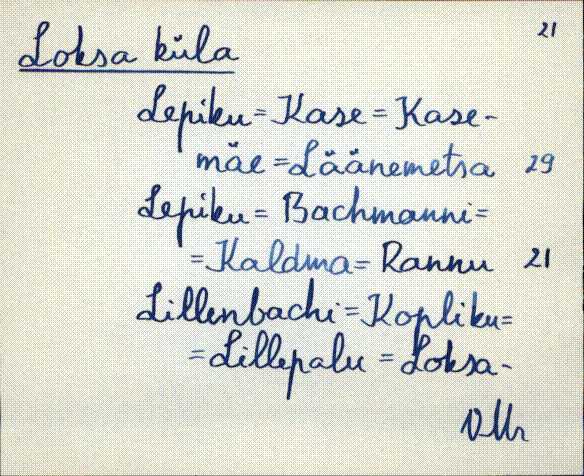 21
Loksa küla
Lepiku = Kase = Kase-
mäe = Läänemetsa 29
Lepiku = Bachmanni =
= Kaldma = Rannu 21
Lillenbachi = Kopliku =
= Lillepalu = Loksa-